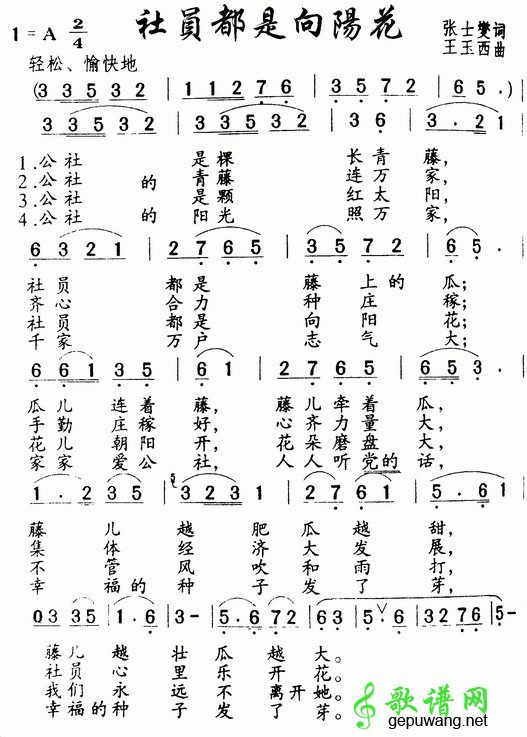 社員都是向陽花
1=A 2/4
张士燮词
王玉西曲
轻松、愉快地
(3 3 5 3 2 | 3 3 5 3 2 | 1 1 2 7 6 | 3 5 7 2 | 6 5 .) |
3 3 5 3 2 | 3 3 5 3 2 | 3 6 | 3 . 2 1 |
1.公社 是棵 长青藤,
2.公社的青藤 连万家,
3.公社 是颗 红太阳,
4.公社的阳光 照万家,
6 3 2 1 | 2 7 6 5 | 3 5 7 2 | 6 5 . |
社员 都是 藤上的瓜;
齐心 合力 种庄稼;
社员 都是 向阳花;
千家 万户 志气大;
6 6 1 3 5 | 6 1 | 2 7 6 5 | 6 5 3 |
瓜儿连着藤, 藤儿牵着瓜,
手勤庄稼好, 心齐力量大,
花儿朝阳开, 花朵磨盘大,
家家爱公社, 人人听党的话,
1 . 2 3 5 | 3 2 3 1 | 2 7 6 1 | 5 . 6 |
藤儿越肥瓜越甜,
集体经济大发展,
不管风吹和雨打,
幸福的种子发了芽,
0 3 3 5 | 1 . 6 | 3 - | 5 . 6 7 2 | 6 3 | 5 . 6 | 3 2 7 6 | 5 - |
藤儿越壮瓜越大。
社员心里乐开花。
我们永远不离开她。
幸福的种子发了芽。
歌谱网
gepuwang.net